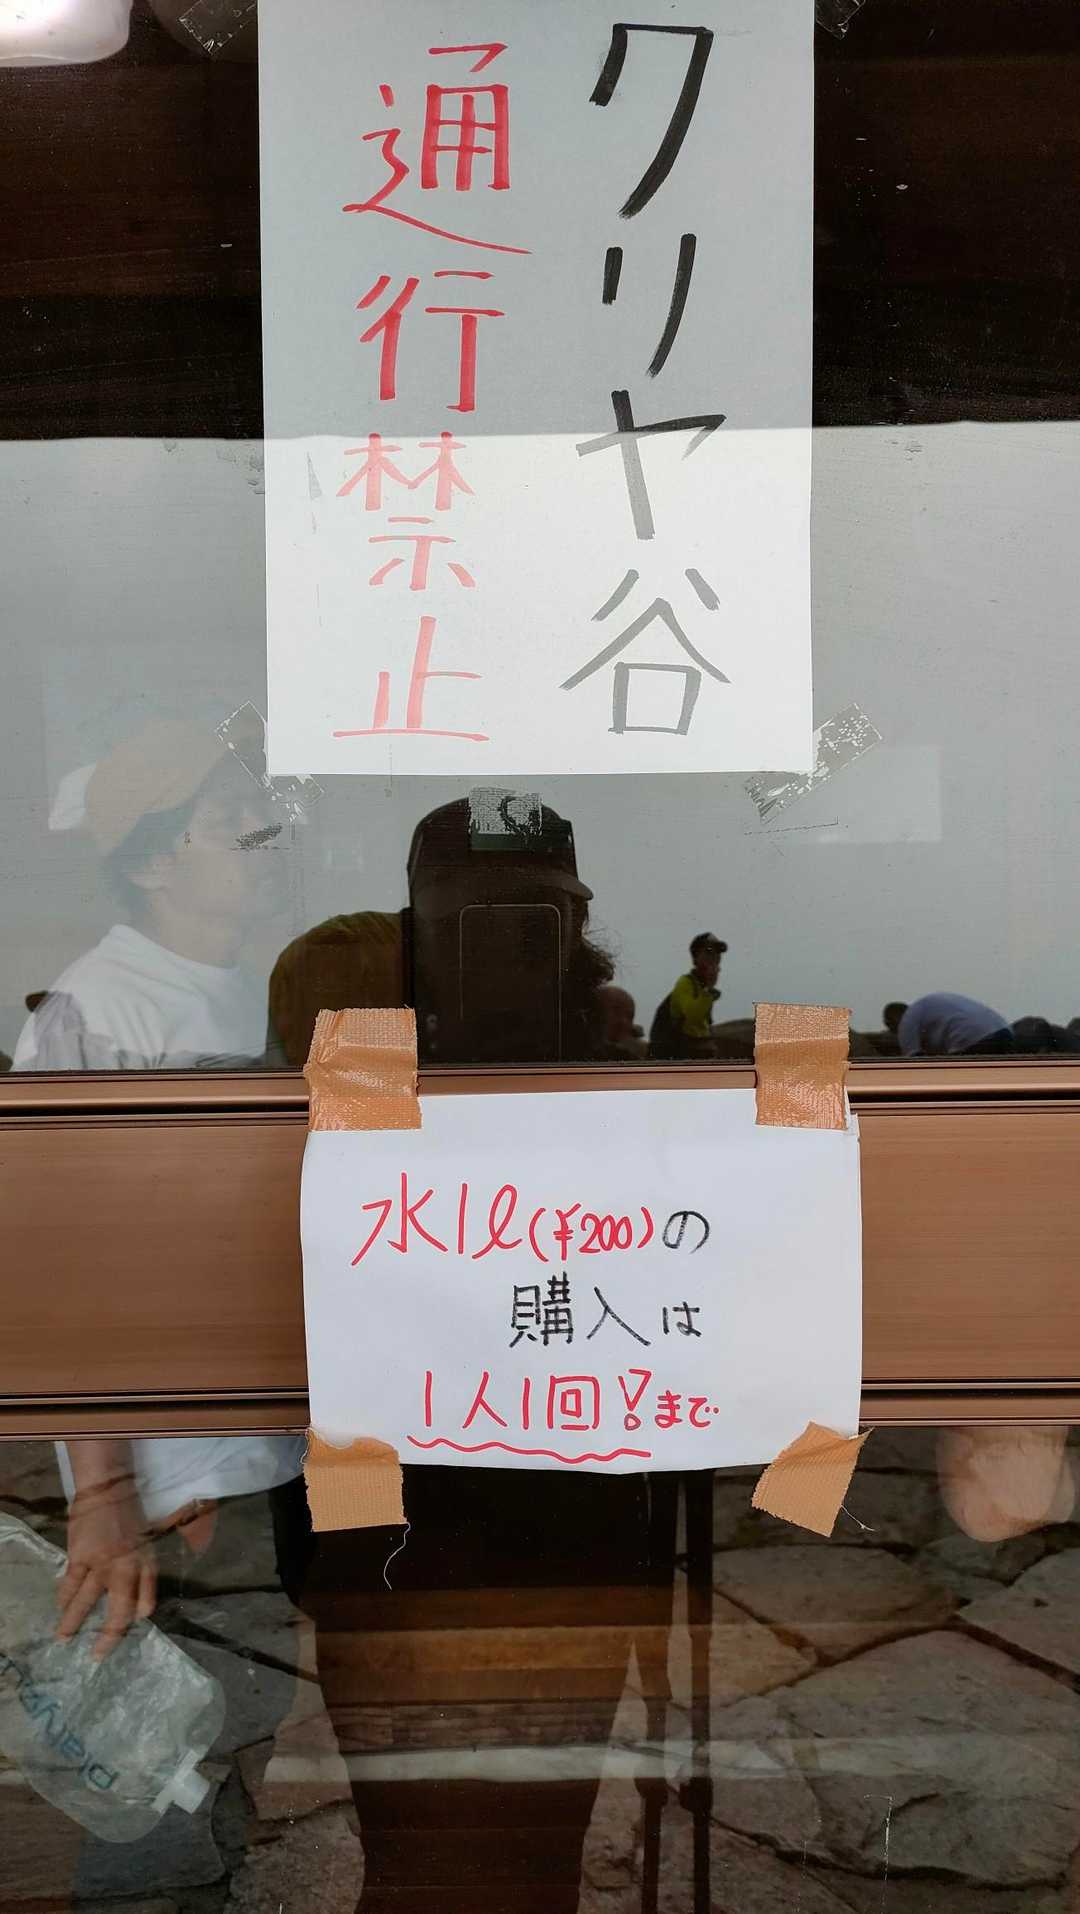 クリヤ谷
通行禁止
水1ℓ(¥200)の
購入は
1人1回!まで
platypus